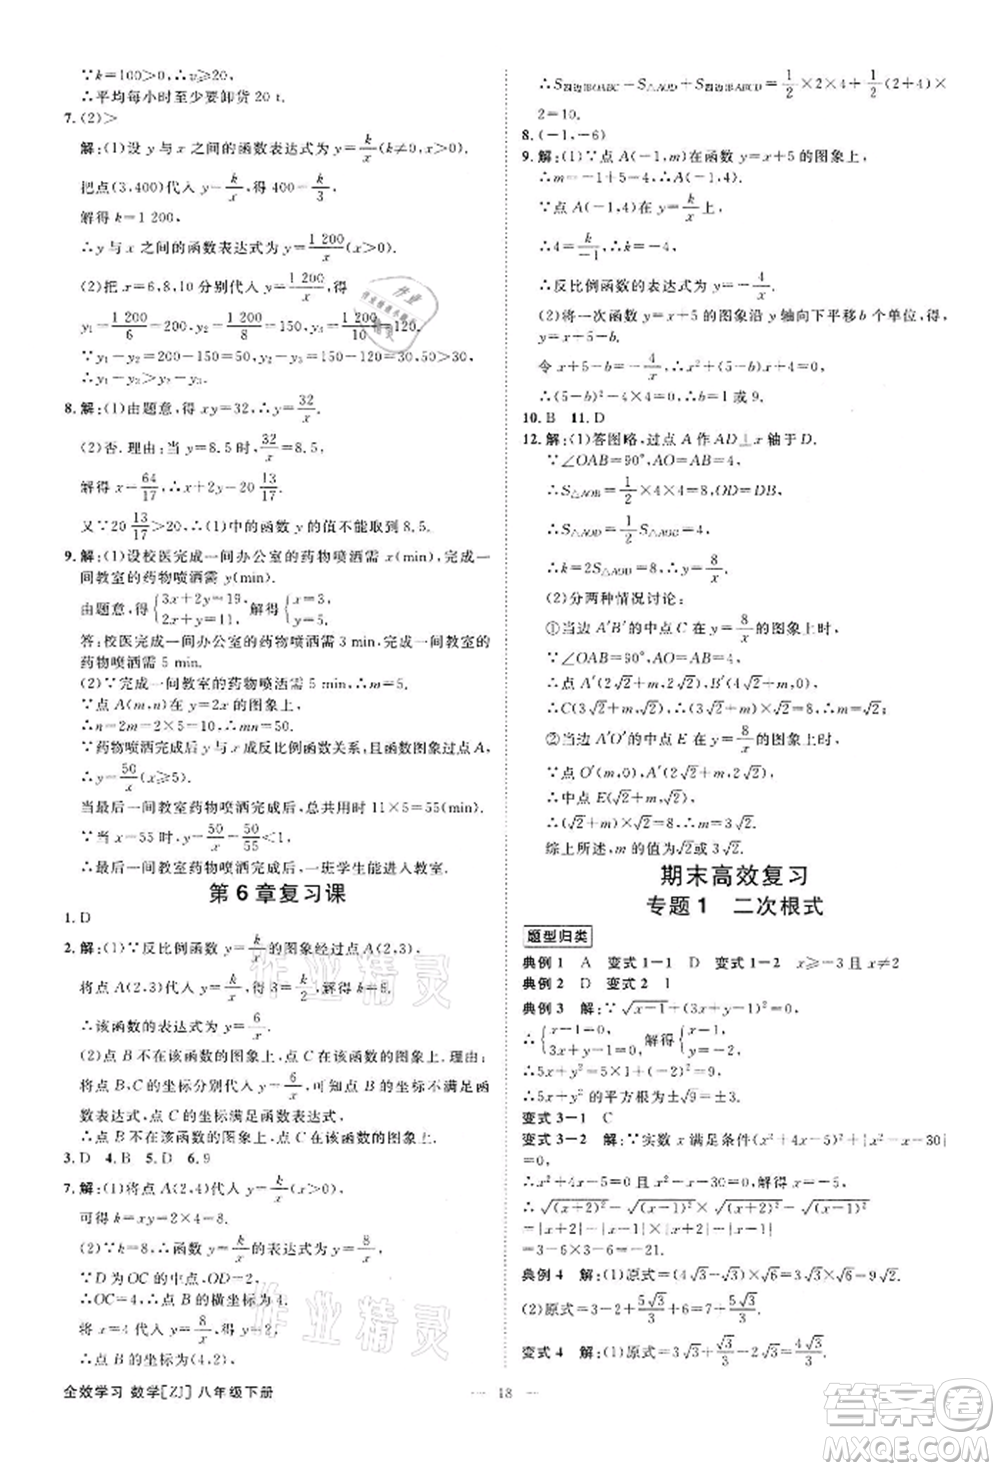 ∵k=100>0,∴v≥20.
∴平均每小时至少要卸货 20 t.
7. (2)>
解:(1)设 y 与 x 之间的函数表达式为 y=k/x(k≠0),
把点(3,400)代入 y=k/x,得 400=k/3,
解得 k=1 200,
∴y 与 x 之间的函数表达式为 y=1 200/x.
(2)把 x=6,8,10 分别代入 y=1 200/x,得
y₁=1 200/6=200,y₂=1 200/8=150,y₃=1 200/10=120,
∵y₁-y₂=200-150=50,y₂-y₃=150-120=30,
∴y₁-y₂>y₂-y₃.
8. 解:(1)由题意,得 xy=32,∴y=32/x.
(2)否.理由:当 y=8.5 时,32/x=8.5,
解得 x=64/17,∴4x+y=20 13/17,
又∵20 13/17>20,∴(1)中的函数 y 的值不能取到 8.5.
9. 解:(1)设校医完成一间办公室的药物喷洒需 x(min),完成一
间教室的药物喷洒需 y(min).
由题意,得{3x+2y=19, 2x+y=11, 解得{x=3, y=5.
答:校医完成一间办公室的药物喷洒需 3 min,完成一间教室的
药物喷洒需 5 min.
(2)∵完成一间教室的药物喷洒需 5 min,∴m=5.
∵点 A(m,n)在函数 y=2x 的图象上,
∴n=2m=2×5=10,∴A(5,10).
∵药物喷洒完成后 y 与 x 成反比例函数关系,且函数图象过点 A,
∴y=50/x(x≥5).
当最后一间教室药物喷洒完成后,总共用时 11×5=55(min),
∵当 x=55 时,y=50/x=50/55=10/11<1,
∴最后一间教室药物喷洒完成后,一班学生能进入教室.
第 6 章复习课
1. D
2. 解:(1)∵反比例函数 y=k/x 的图象过点 A(2,3),
将点 A(2,3)代入 y=k/x,得 3=k/2,解得 k=6.
∴该函数的表达式为 y=6/x.
(2)点 B 不在该函数的图象上,点 C 在该函数的图象上.理由:
将点 B,C 的坐标分别代入 y=6/x,可知点 B 的坐标不满足函
数表达式,点 C 的坐标满足函数表达式,
∴点 B 不在该函数的图象上,点 C 在该函数的图象上.
3. D 4. B 5. D 6. 9
7. 解:(1)将点 A(2,4)代入 y=k/x(x>0),
可得 k=xy=2×4=8.
(2)∵k=8,∴函数 y=k/x 的表达式为 y=8/x.
∵D 为 OC 的中点,OD=2,
∴OC=4,∴点 B 的横坐标为 4.
将 x=4 代入 y=8/x,可得 y=2,
∴点 B 的坐标为(4,2),
全效学习 数学[ZJ] 八年级下册
∴S四边形OABC=S△AOD+S四边形ABCD=1/2×2×4+1/2(2+4)×
2=10.
8. (-1,-6)
9. 解:(1)∵点 A(-1,m)在函数 y=x+5 的图象上,
∴m=-1+5=4,∴A(-1,4).
∵点 A(-1,4)在函数 y=k/x 上,
∴4=k/-1,∴k=-4,
∴反比例函数的表达式为 y=-4/x.
(2)将一次函数 y=x+5 的图象沿 y 轴向下平移 b 个单位,得
y=x+5-b,
令 x+5-b=-4/x,∴x²+(5-b)x+4=0,
∴(5-b)²-16=0,解得 b=9 或 1.
10. B 11. D
12. 解:(1)答图略,过点 A 作 AD⊥x 轴于 D.
∵∠OAB=90°,AO=AB=4,
∴S△AOB=1/2×4×4=8,OD=DB,
∴S△AOD=1/2S△AOB=4,
∴k=2S△AOD=8,∴y=8/x.
(2)分两种情况讨论:
①当边 A′B′的中点 C 在 y=8/x 的图象上时,
∵∠OAB=90°,AO=AB=4,
∴点 A′(2√2+m,2√2),B′(4√2+m,0),
∴C(3√2+m,√2),∴(3√2+m)×√2=8,∴m=√2;
②当边 A′O′的中点 E 在 y=8/x 的图象上时,
∵点 O′(m,0),A′(2√2+m,2√2),
∴中点 E(√2+m,√2),
∴(√2+m)×√2=8,∴m=3√2.
综上所述,m 的值为√2或 3√2.
期末高效复习
专题 1 二次根式
题型归类
典例 1 A 变式 1-1 D 变式 1-2 x≥-3 且 x≠2
典例 2 D 变式 2 1
典例 3 解:∵√x-1+(3x+y-1)²=0,
∴{x-1=0, 3x+y-1=0, 解得{x=1, y=-2,
∴5x+y²=5×1+(-2)²=9,
∴5x+y² 的平方根为±√9=±3.
变式 3-1 C
变式 3-2 解:∵实数 x 满足条件(x²+4x-5)²+|x²-x-30|
=0,
∴x²+4x-5=0,x²-x-30=0,∴x=-5,
∴√(x+2)²-√(x-1)²×√(x-1)²
=|x+2|-|x-1|×|x-1|
=3-6×3-6=-21.
典例 4 解:(1)原式=(4√3-√3)×2√2=3√3×2√2=6√6.
(2)原式=3-2+5√3/3=1+5√3/3.
— 18 —
答案圈
MXQE.COM